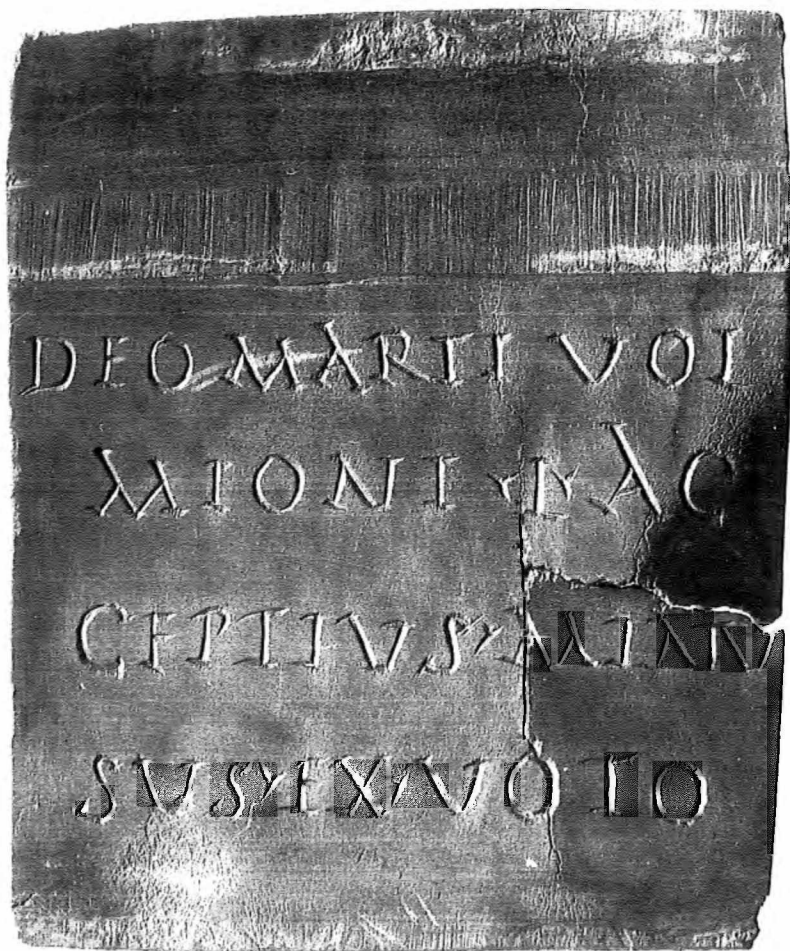 DEO MARTI VOL
MIONI · L · AC
CEPTIVS · MIANV
SVS · EX · VOTO